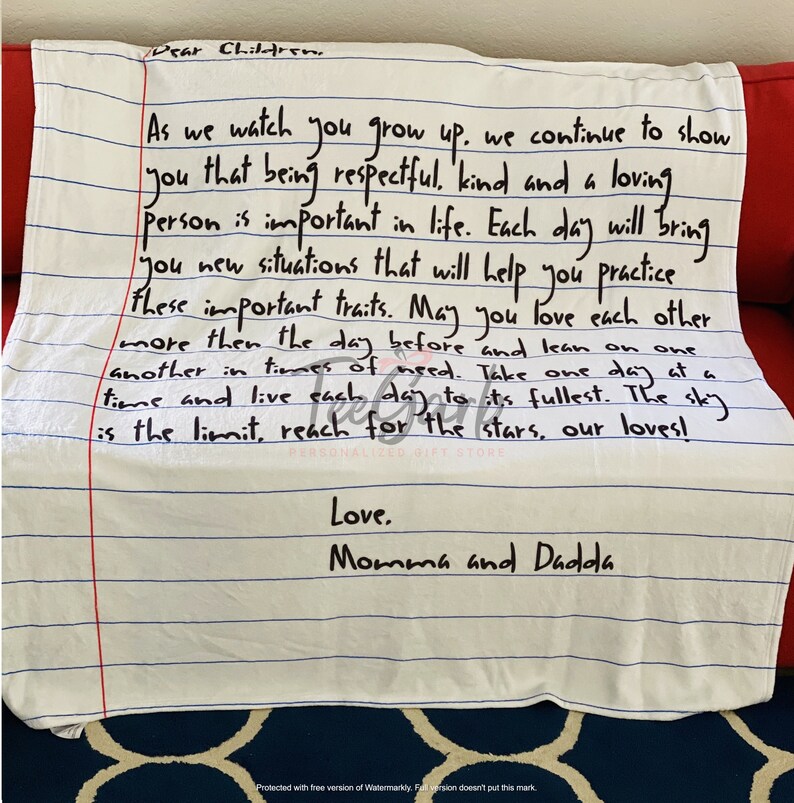 Dear Children,
As we watch you grow up, we continue to show
you that being respectful, kind and a loving
person is important in life. Each day will bring
you new situations that will help you practice
these important traits. May you love each other
more then the day before and lean on one
another in times of need. Take one day at a
time and live each day to its fullest. The sky
is the limit, reach for the stars, our loves!
TeeGarb
PERSONALIZED GIFT STORE
Love,
Momma and Dadda
Protected with free version of Watermarkly. Full version doesn't put this mark.